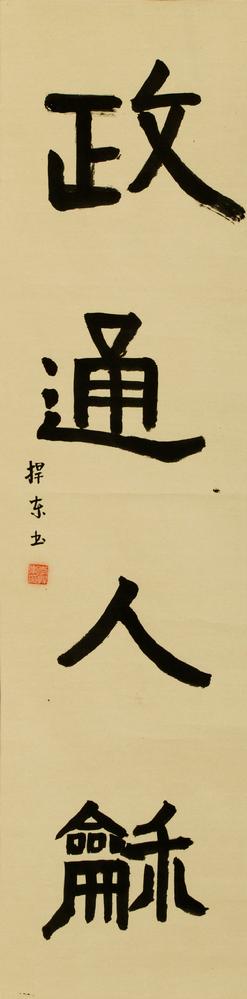 政通人龢
捍东书